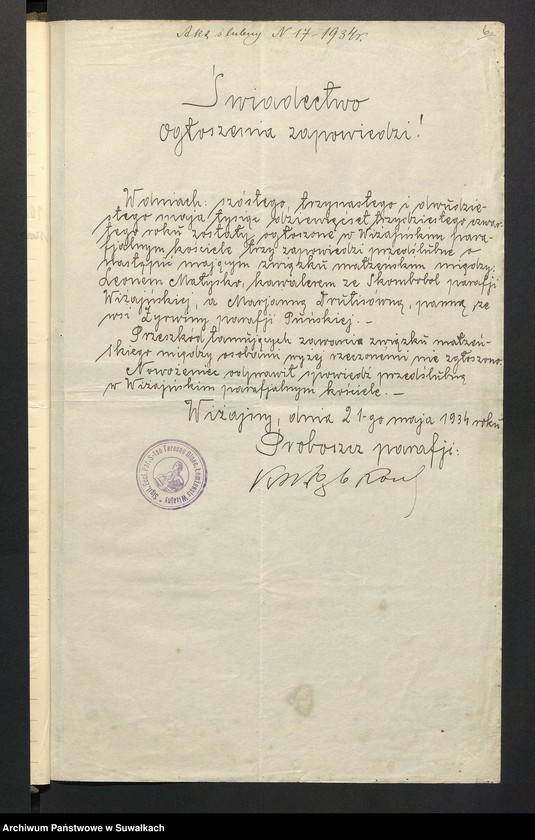 Akt ślubny N 17 - 1934 r.
6
Świadectwo
ogłoszenia zapowiedzi!
W dniach: szóstego, trzynastego i dwudzie-
stego maja tysiąc dziewięćset trzydziestego czwar-
tego roku zostały ogłoszone w Wiżajńskim para-
fjalnym kościele trzy zapowiedzi przedślubne o
nastąpić mającym związku małżeńskim między:
Leonem Matysko, kawalerem ze Skombobol parafji
Wiżajńskiej, a Marjanną Trutisówną, panną, ze
wsi Żyrwiny parafji Puńskiej. —
Przeszkód tamujących zawarcia związku małżeń-
skiego między osobami wyżej rzeczonemi nie zgłoszono.
Nowożeniec odprawił spowiedź przedślubną
w Wiżajńskim parafjalnym kościele. —
Wiżajny, dnia 21-go maja 1934 roku
Proboszcz parafji:
Archiwum Państwowe w Suwałkach